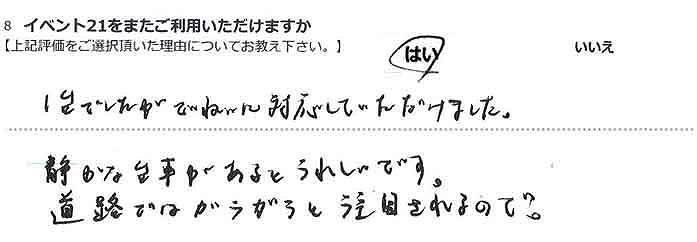 8 イベント21をまたご利用いただけますか
【上記評価をご選択頂いた理由についてお教え下さい。】 はい いいえ
1台でしたがていねいに対応していただけました。
静かな台車があるとうれしいです。
道路ではガラガラと注目されるので。